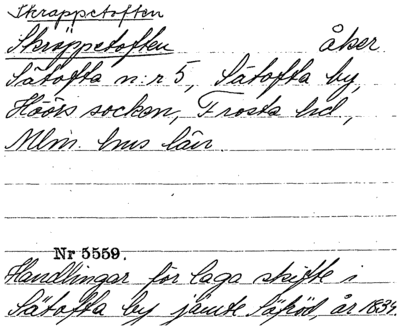 Skrappetoften
Skräppetoften åker
Sätofta n:r 5, Sätofta by,
Höörs socken, Frosta hd,
Mlm. hus län.
Nr 5559.
Handlingar för laga skifte i
Sätofta by jämte Säfröd, år 1834.